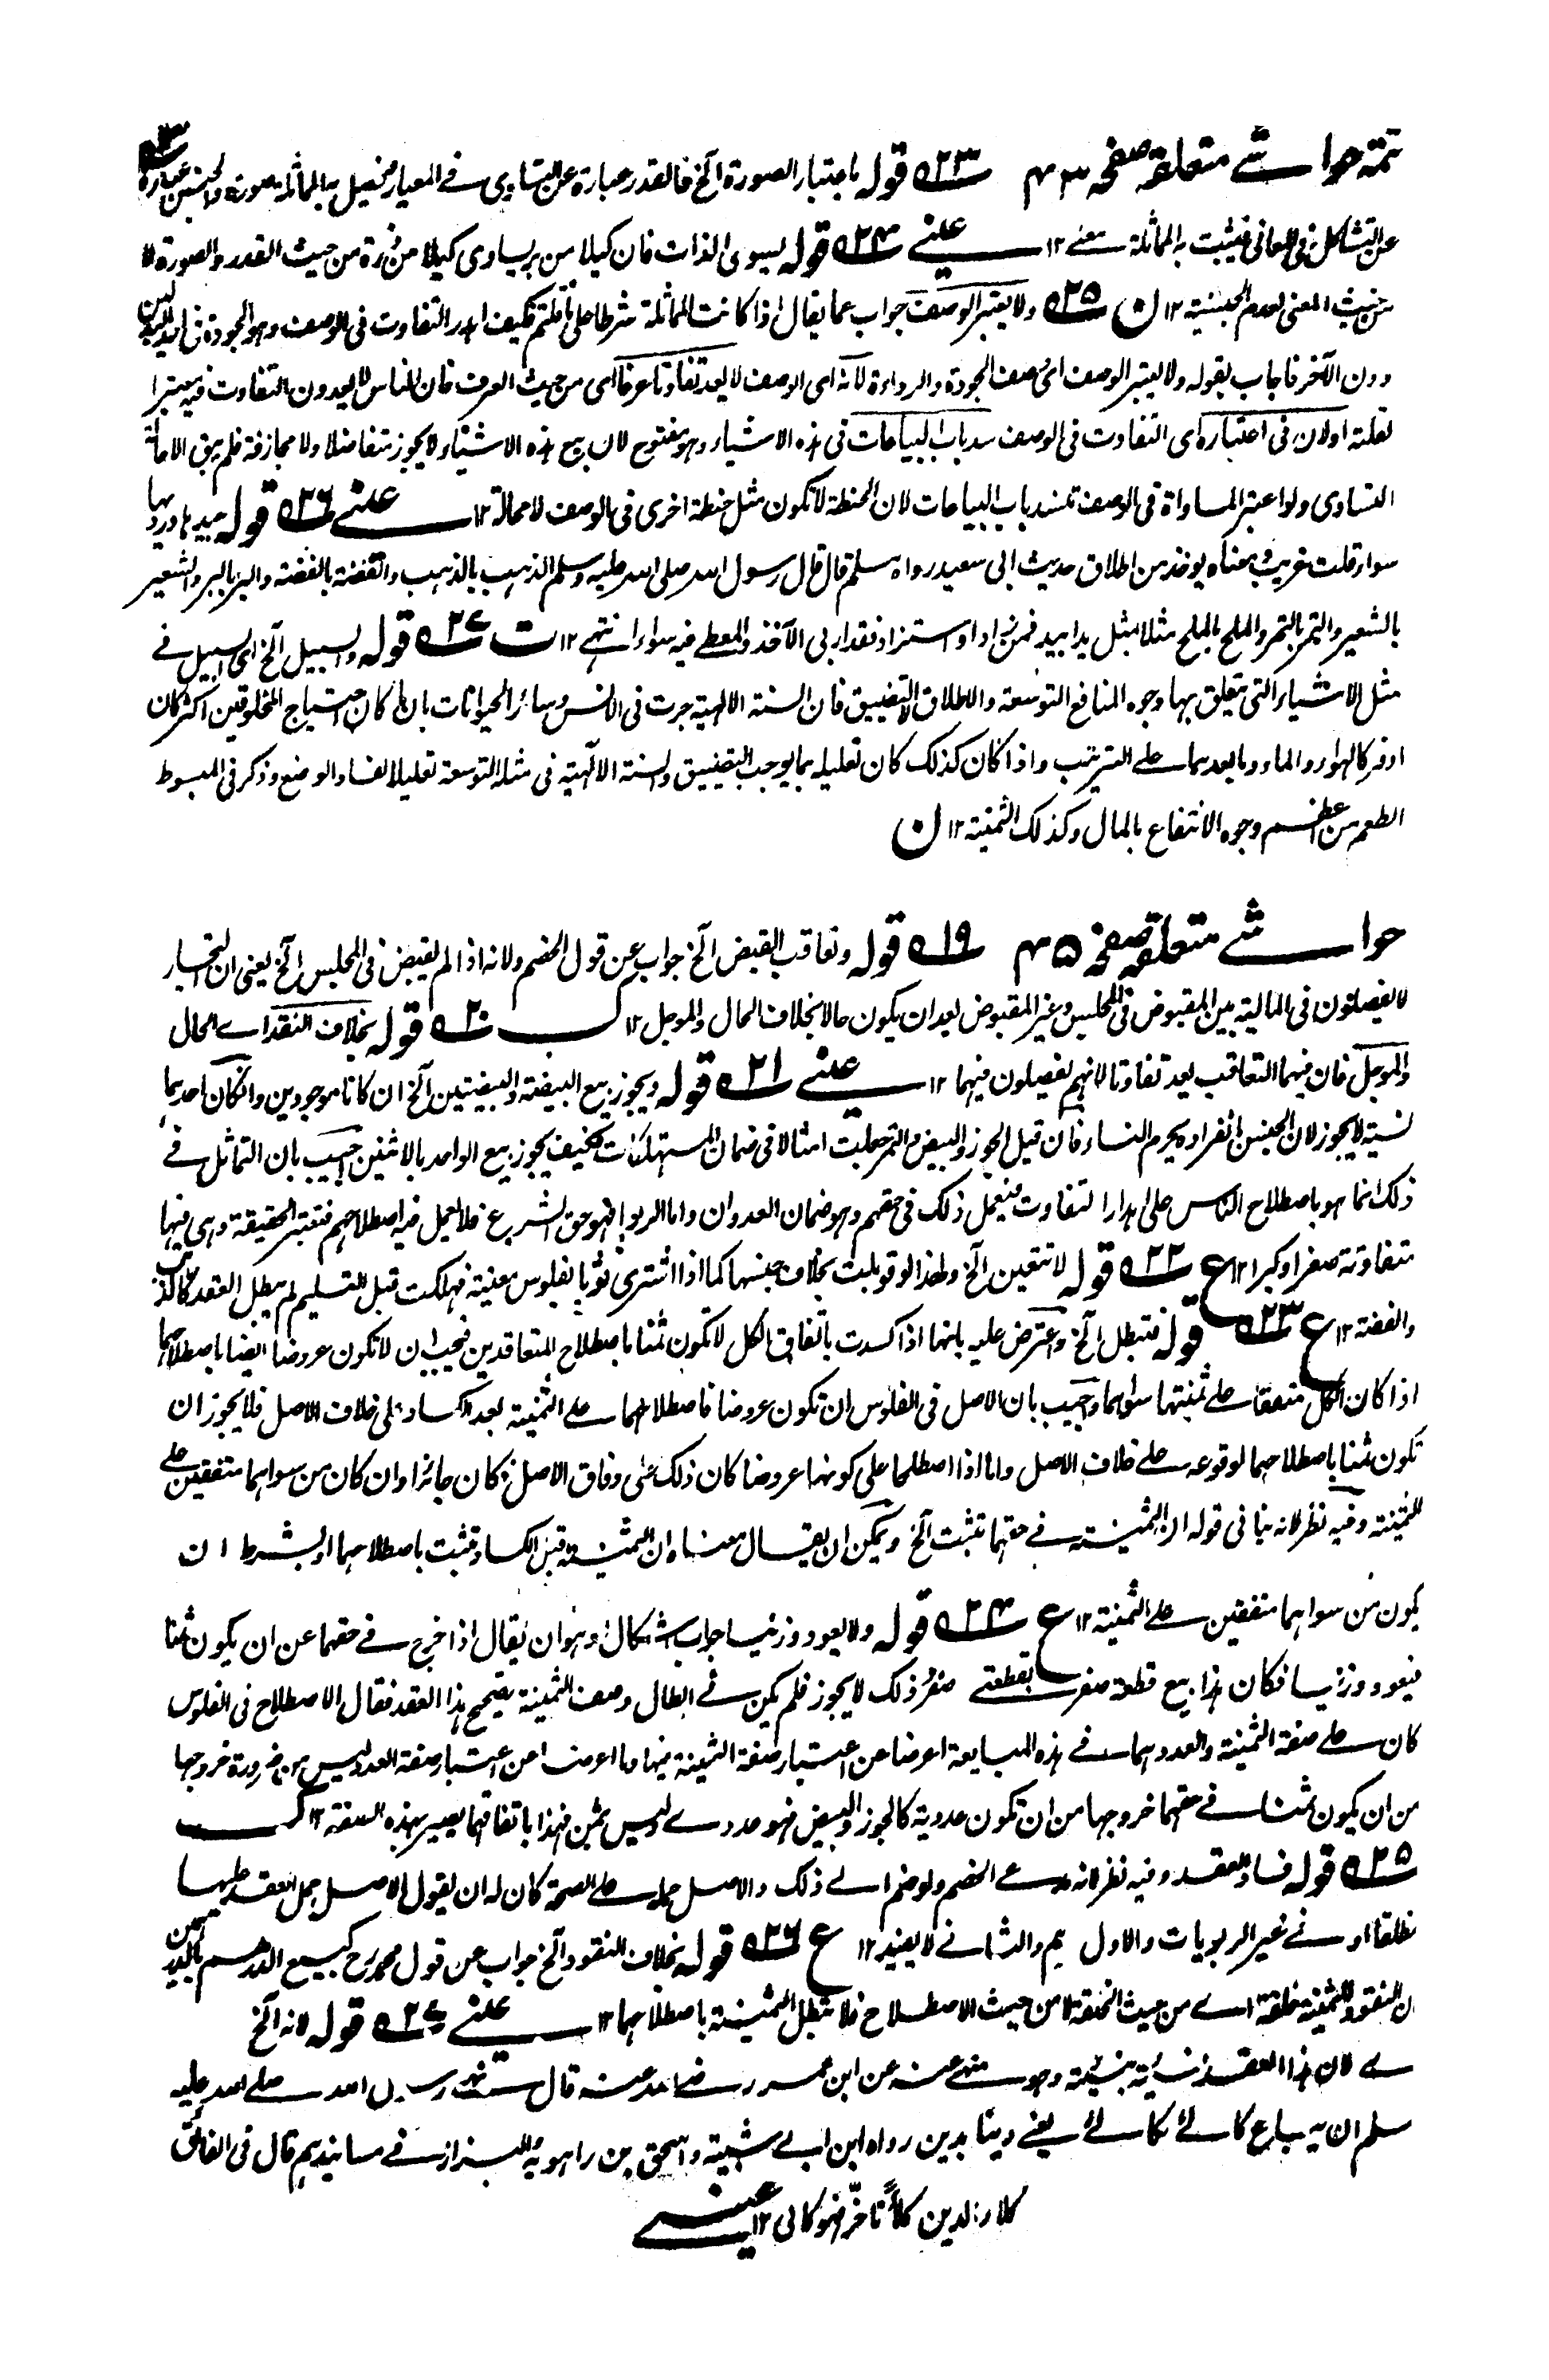 تتمه حواشے متعلقہ صفحہ ۴۳ ۲۳ قوله باعتبار الصورة الخ فالقدر عبارة عن التساوى فے المعيار فيحصل به المماثلة صورة والجنس عبارة
عن التشاكل فى المعانى فيثبت به المماثلة معنے ۱۲ عينے ۲۴ قوله يسوى الذات فان كيلا من بر يساوى كيلا من ذرة من حيث القدر والصورة لا
من حيث المعنى لعدم الجنسية ۱۲ ن ۲۵ ولا يعتبر الوصف جواب عما يقال اذا كانت المماثلة شرطا على ما قلتم فكيف اهدر التفاوت فى الوصف وهو الجودة فى احد البدلين
دون الآخر فاجاب بقوله ولا يعتبر الوصف اى وصف الجودة والرداءة لانه اى الوصف لا يعد تفاوتا عرفا اى من جهة العرف فان الناس لا يعدون التفاوت فيه معتبرا
لقلته اولان فى اعتباره اى التفاوت فى الوصف سد باب البياعات فى هذه الاشياء وهو مفتوح لان بيع هذه الاشياء لا يجوز متفاضلا ولا مجازفة فلم يبق الا حالة
التساوى ولو اعتبر المساواة فى الوصف تنسد باب البياعات لان الحنطة لا تكون مثل حنطة اخرى فى الوصف لا محالة ۱۲ عينے ۲۶ قوله جيدها ورديها
سواء قلت غريب ومعناه يوخذ من اطلاق حديث ابى سعيد رواه مسلم قال قال رسول الله صلى الله عليه وسلم الذهب بالذهب والفضة بالفضة والبر بالبر والشعير
بالشعير والتمر بالتمر والملح بالملح مثلا بمثل يدا بيد فمن زاد او استزاد فقد اربى الآخذ والمعطے فيه سواء انتهے ۱۲ ت ۲۷ قوله والسبيل الخ اى السبيل فے
مثل الاشياء التى يتعلق بها وجوه المنافع التوسعة والاطلاق لا التضييق فان السنة الالهية جرت فى الانس وسائر الحيوانات بان ما كان احتياج المخلوقين اكثر كان
اوفر كالهواء والماء وما بعدهما على الترتيب واذا كان كذلك كان تعليله بما يوجب التضييق والسنة الآلهية فى مثله التوسعة تعليلا لفساد الوضع وذكر فى المبسوط
الطعم من اعظم وجوه الانتفاع بالمال وكذلك الثمنية ۱۲ ن
حواشے متعلقہ صفحہ ۴۵ ۱۹ قوله وتعاقب القبض الخ جواب عن قول الخصم ولانه اذا لم يقبض فى المجلس الخ يعنى ان التجار
لا يفصلون فى المالية بين المقبوض فى المجلس وغير المقبوض بعد ان يكون حالا بخلاف الحال والموجل ۱۲ ك ۲۰ قوله بخلاف النقد اے الحال
والموجل فان فيهما التعاقب يعد تفاوتا لانهم يفصلون فيهما ۱۲ عينے ۲۱ قوله ويجوز بيع البيضة والبيضتين الخ ان كانا موجودين وان كان احدهما
نسية لا يجوز لان الجنس بانفراده يحرم النساء فان قيل الجوز والبيض والتمر جعلت امثالا فى ضمان المستهلكات فكيف يجوز بيع الواحد بالاثنين اجيب بان التماثل فے
ذلك انما هو باصطلاح الناس على اهدار التفاوت فيعمل ذلك فى حقهم وهو ضمان العدوان واما الربوا فهو حق الشرع فلا يعمل فيه اصطلاحهم فتعتبر الحقيقة وهى فيها
متفاوتة صغرا وكبرا ۱۲ ع ۲۲ قوله لا تتعين الخ ولهذا لو قوبلت بخلاف جنسها كما اذا اشترى ثوبا بفلوس معينة فهلكت قبل التسليم لم يبطل العقد كالذهب
والفضة ۱۲ ع ۲۳ قوله فتبطل الخ واعترض عليه بانها اذا كسدت باتفاق الكل لا تكون ثمنا باصطلاح المتعاقدين فيجب ان لا تكون عروضا ايضا باصطلاحهما
اذا كان الكل متفقا على ثمنيتها سواهما واجيب بان الاصل فى الفلوس ان تكون عروضا فاصطلاحهما على الثمنية بعد الكساد على خلاف الاصل فلا يجوز ان
تكون ثمنا باصطلاحهما لوقوعه على خلاف الاصل واما اذا اصطلحا على كونها عروضا كان ذلك على وفاق الاصل فكان جائزا وان كان من سواهما متفقين على
الثمنية وفيه نظر لانه ينافى قوله ان الثمنية فے حقهما تثبت الخ ويمكن ان يقال معناه ان الثمنية قبل الكساد تثبت باصطلاحهما او بشرط ان
يكون من سواهما متفقين على الثمنية ۱۲ ع ۲۴ قوله ولا يعود وزنيا جواب اشكال وهو ان يقال اذا خرج فے حقهما عن ان يكون ثمنا
فيعود وزنيا فكان هذا بيع قطعة صفر بقطعتے صفر وذلك لا يجوز فلم يكن فے ابطال وصف الثمنية تصحيح هذا العقد فقال الاصطلاح فى الفلوس
كان على صفة الثمنية والعدد وهما فے هذه المبايعة اعرضا عن اعتبار صفة الثمنية فيها وما اعرضا عن اعتبار صفة العدد وليس من ضرورة خروجها
من ان يكون ثمنا فے حقهما خروجها من ان تكون عددية كالجوز والبيض فهو عددے وليس بثمن فهذا باتفاقهما يصير بهذه الصفة ۱۲ ك
۲۵ قوله فساد العقد وفيه نظر لانه مدعے الخصم ولو ضم الے ذلك والاصل حمله على الصحة كان له ان يقول الاصل حمل العقد عليها
مطلقا او فے غير الربويات والاول مم والثانے لا يفيد ۱۲ ع ۲۶ قوله بخلاف النقود الخ جواب عن قول محمد رح كبيع الدرهم بالدرهمين
لان النقود للثمنية خلقة اے من حيث الخلقة لا من حيث الاصطلاح فلا تبطل الثمنية باصطلاحهما ۱۲ عينے ۲۷ قوله لانه الخ
اے لان هذا العقد نسئية بنسئية وهو منهے عنه عن ابن عمر رضے الله عنه قال نهى رسول الله صلے الله عليه
سلم ان يباع كالئ بكالئ يعنے دينا بدين رواه ابن ابے شيبة واسحق بن راهويه والبزار فے مسانيدهم قال فى الفائق
كلاء الدين كلأ تاخر فهو كالى ۱۲ عينے